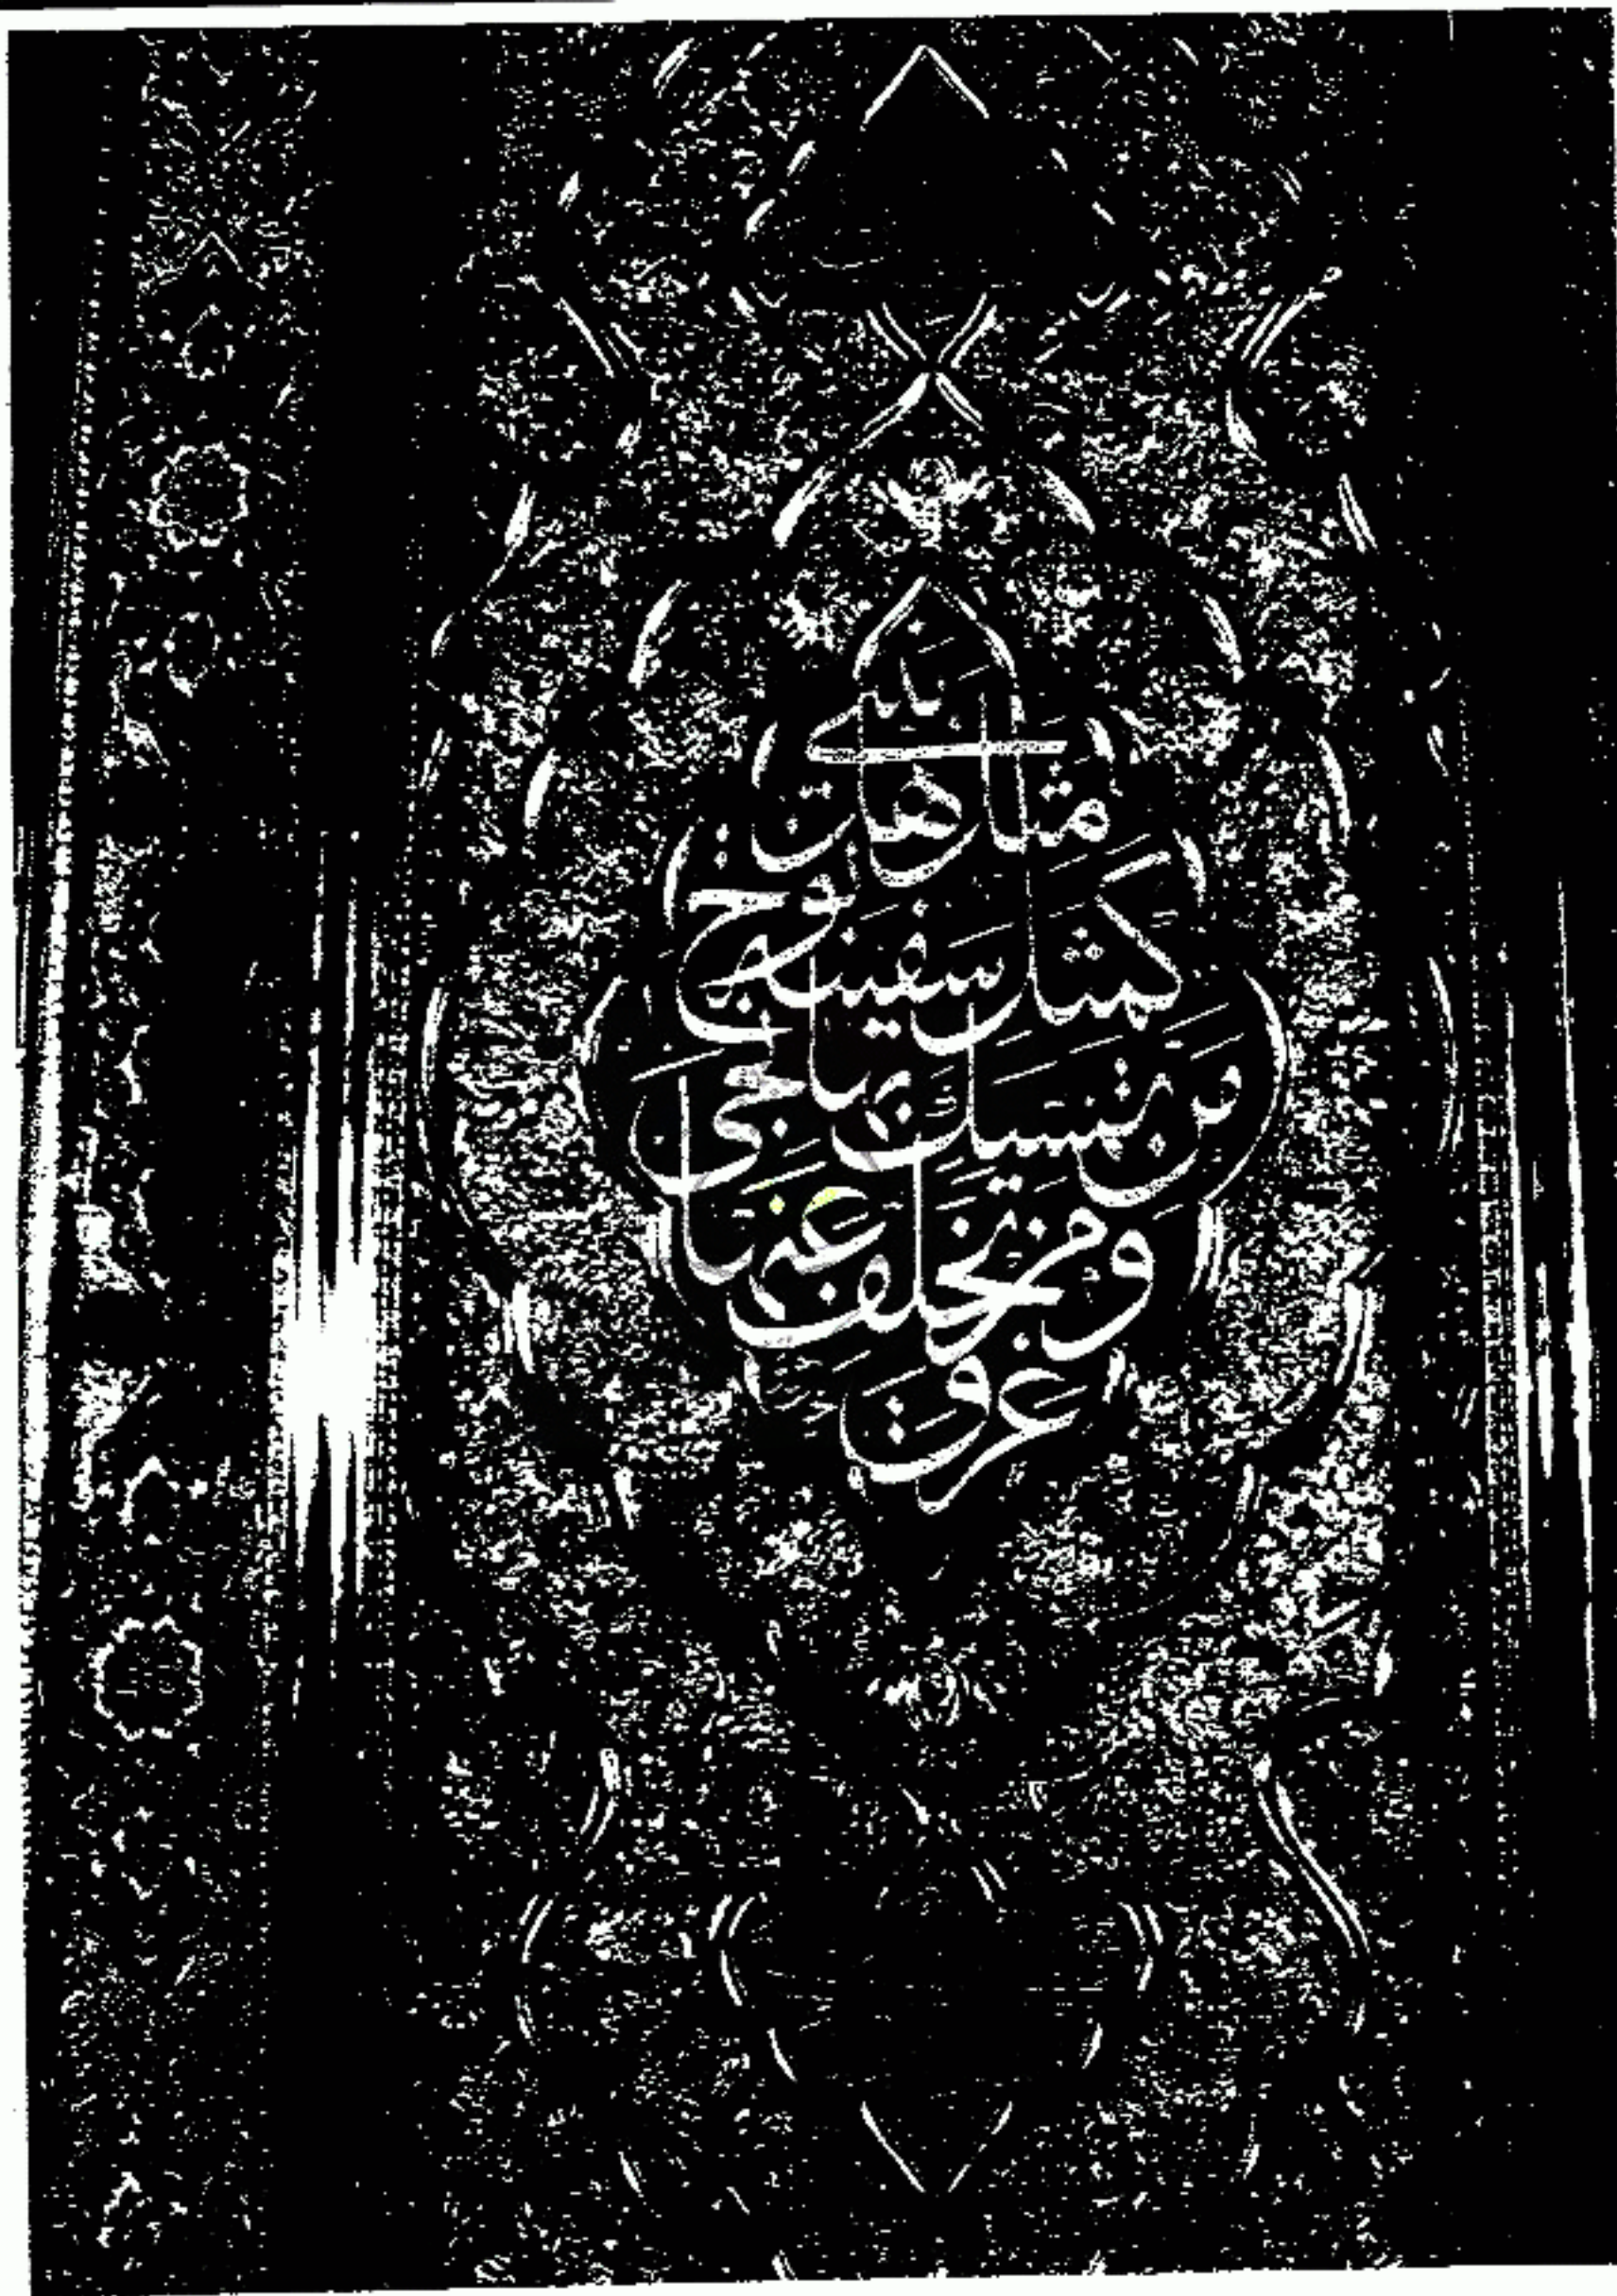 مثل اهل بيتي
كمثل سفينة نوح
من تمسك بها نجى
ومن تخلف عنها
غرق